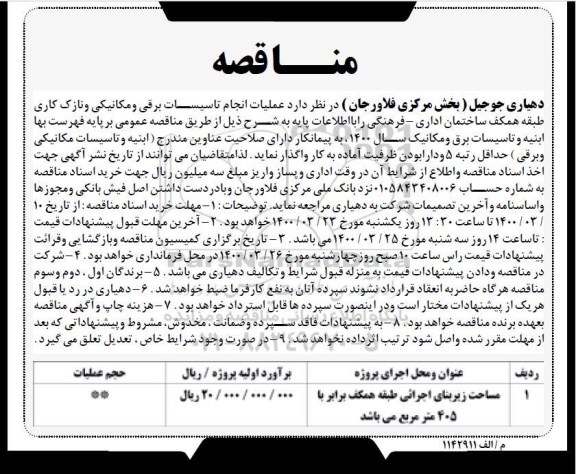 منـــاقصه
دهیاری جوجیل ( بخش مرکزی فلاورجان ) در نظر دارد عملیات انجام تاسیسـات برقی ومکانیکی ونازک کاری
طبقه همکف ساختمان اداری – فرهنگی رابااطلاعات پایه به شـرح ذیل از طریق مناقصه عمومی بر پایه فهرست بها
ابنیه و تاسیسات برق ومکانیکی سـال ۱۴۰۰، به پیمانکار دارای صلاحیت عناوین مندرج ( ابنیه و تاسیسات مکانیکی
وبرقی ) حداقل رتبه ۵ ودارابودن ظرفیت آماده به کار واگذار نماید . لذامتقاضیان می توانند از تاریخ نشر آگهی جهت
اخذ اسناد مناقصه واطلاع از شرایط آن در وقت اداری و پساز واریز مبلغ سه میلیون ریال جهت خرید اسناد مناقصه
به شماره حساب ۰۱۰۵۸۴۳۴۰۸۰۰۶ نزد بانک ملی مرکزی فلاورجان وبادردست داشتن اصل فیش بانکی ومجوزها
واساسنامه و آخرین تصمیمات شرکت به دهیاری مراجعه نماید. توضیحات : ۱- مهلت خرید اسناد مناقصه : از تاریخ ۱۰
/ ۰۳ / ۱۴۰۰ تا ساعت ۳۰ : ۱۳ روز یکشنبه مورخ ۲۳ / ۰۳ / ۱۴۰۰ خواهد بود . ۲- آخرین مهلت قبول پیشنهادات قیمت
: تاساعت ۱۴ روز سه شنبه مورخ ۲۵ / ۰۳ / ۱۴۰۰ می باشد . ۳- تاریخ برگزاری کمیسیون مناقصه وبازگشایی وقرائت
پیشنهادات قیمت راس ساعت ۱۰ صبح روز چهارشنبه مورخ ۲۶ / ۰۳ / ۱۴۰۰ در محل فرمانداری خواهد بود . ۴- شرکت
در مناقصه ودادن پیشنهادات قیمت به منزله قبول شرایط و تکالیف دهیاری می باشد . ۵- برندگان اول ، دوم وسوم
مناقصه هرگاه حاضر به انعقاد قرارداد نشوند سپرده آنان به نفع کارفرما ضبط خواهد شد . ۶- دهیاری در رد یا قبول
هر یک از پیشنهادات مختار است ودر اینصورت سپرده ها قابل استرداد خواهد بود . ۷- هزینه چاپ وآگهی مناقصه
بعهده برنده مناقصه خواهد بود . ۸- به پیشنهادات فاقد سـپرده وضمانت ، مخدوش، مشروط و پیشنهاداتی که بعد
از مهلت مقرر شده واصل شود ترتیب اثر داده نخواهد شد . ۹- در صورت وجود شرایط خاص ، تعدیل تعلق می گیرد .
ردیف عنوان ومحل اجرای پروژه برآورد اولیه پروژه / ریال حجم عملیات
۱ مساحت زیربنای اجرائی طبقه همکف برابر با ۲۰ / ۰۰۰ / ۰۰۰ / ۰۰۰ ریال **
۴۰۵ متر مربع می باشد
م / الف ۱۱۴۲۹۱۱